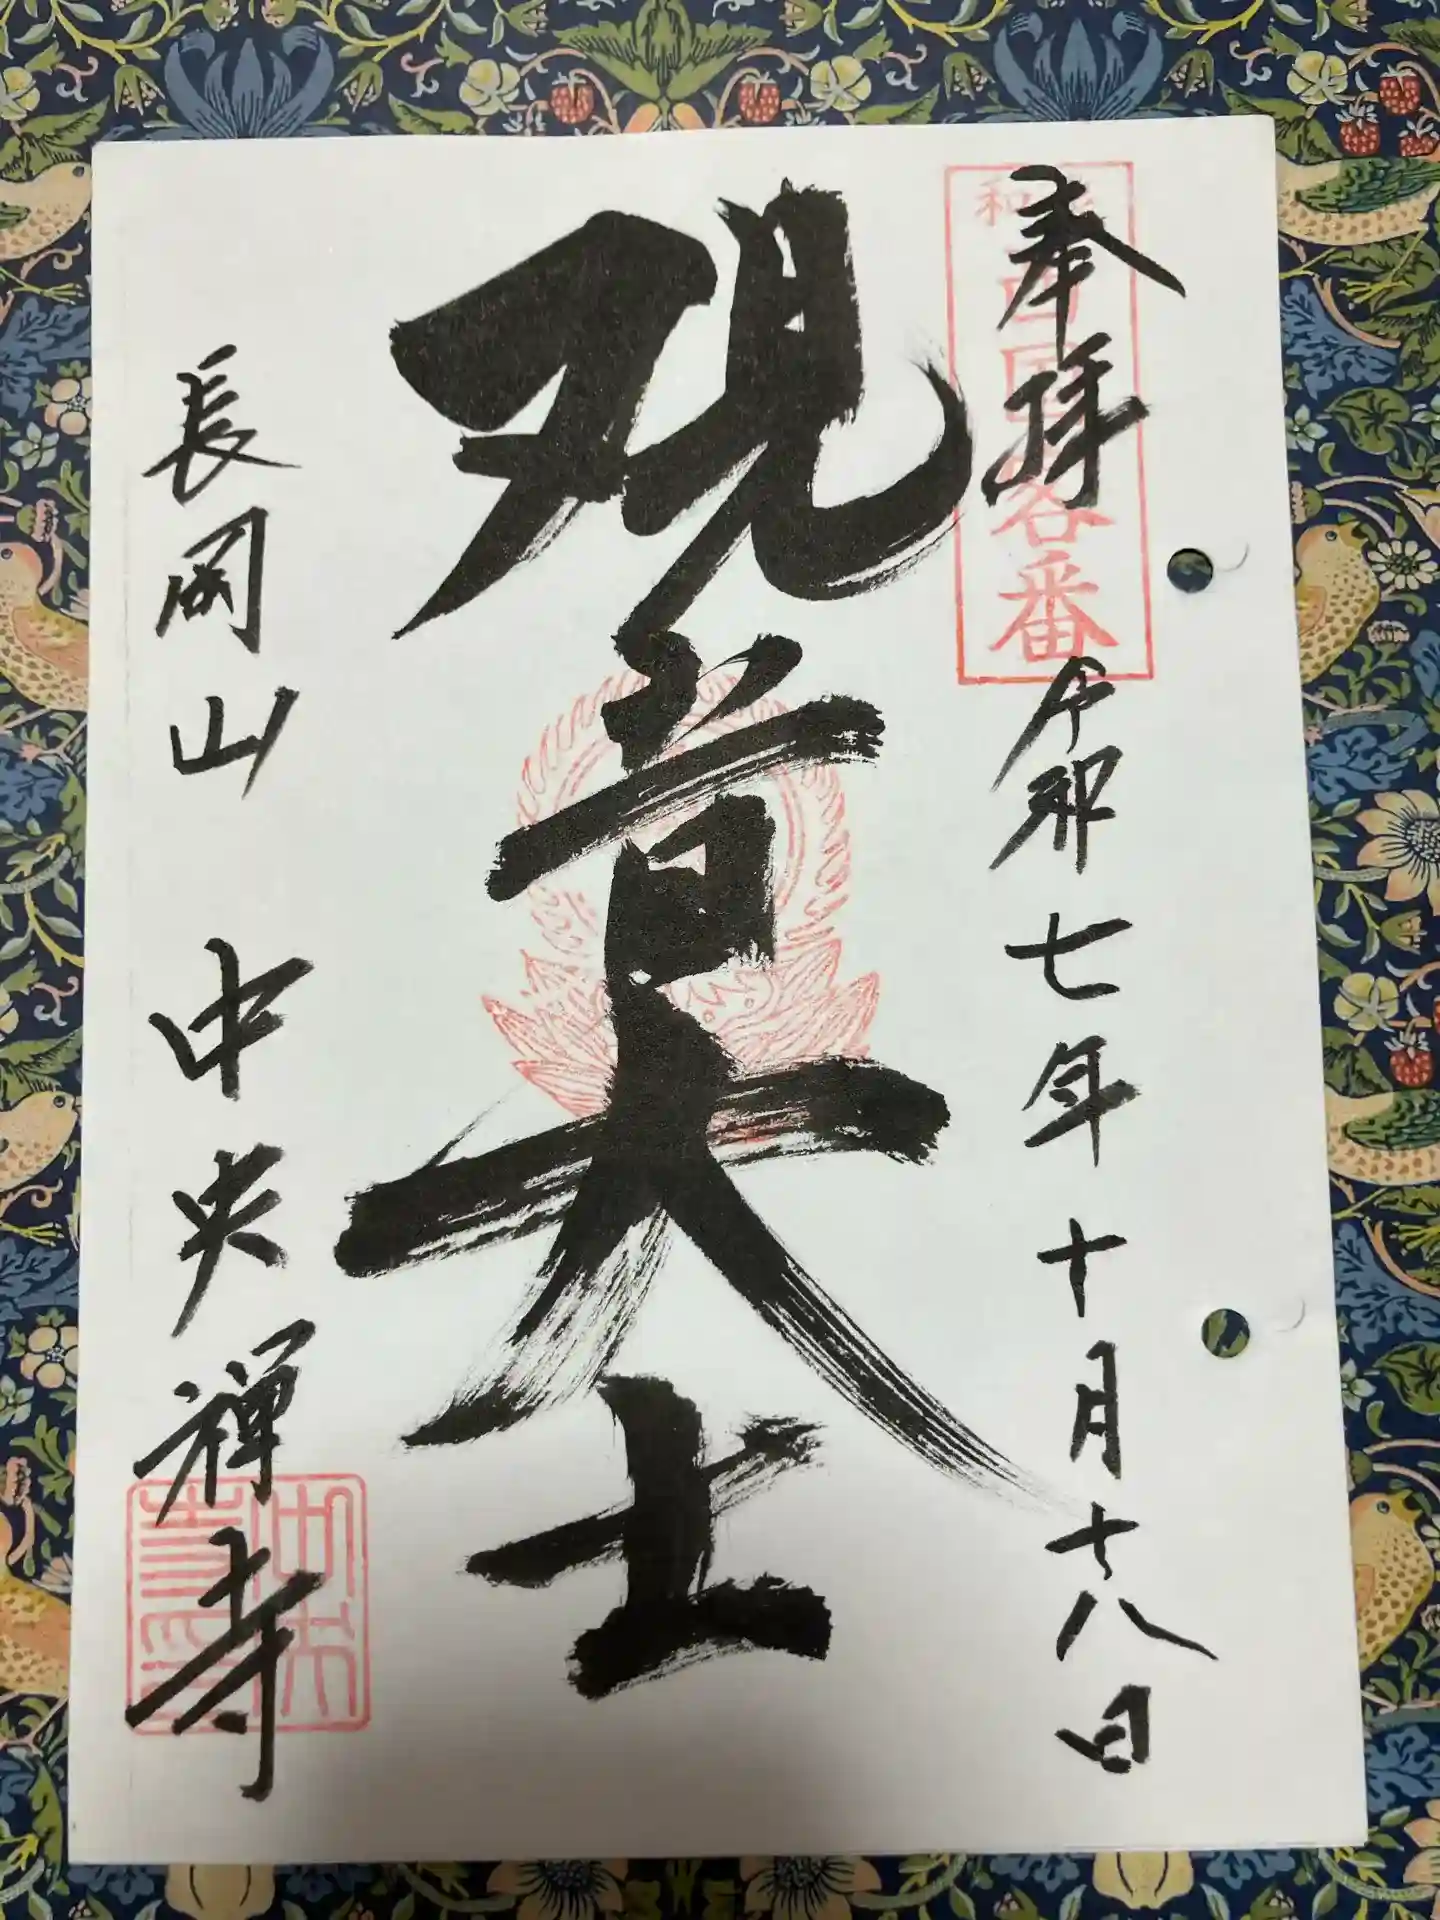 奉拝 令和七年十月十八日
西国客番
観音大士
長岡山 中央禅寺
中央寺印